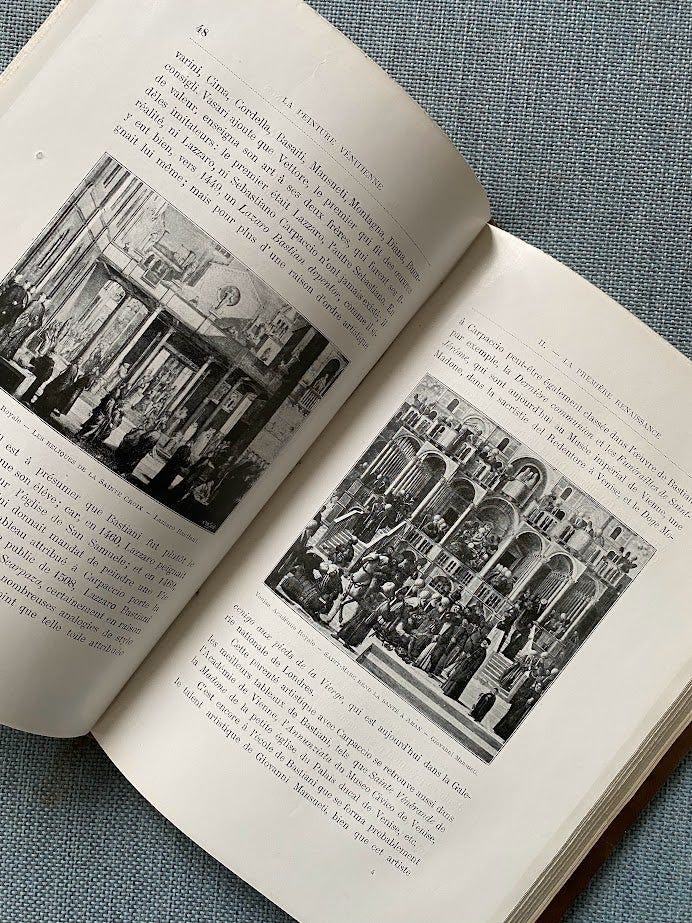 48
LA PEINTURE VÉNITIENNE
varini, Cima, Cordella, Basaiti, Mansueti, Montagna, Diana, Buon-
consigli. Vasari ajoute que Vettore, le premier qui fit des œuvres
de valeur, enseigna son art à ses deux frères, qui furent ses fi-
dèles imitateurs: le premier était Lazzaro, l'autre Sebastiano. En
réalité, ni Lazzaro, ni Sebastiano Carpaccio n'ont jamais existé; il
y eut bien, vers 1449, un Lazaro Bastian depentor, comme il si-
gnait lui même; mais pour plus d'une raison d'ordre artistique
Royale — LES RELIQUES DE LA SAINTE CROIX — Lazzaro Bastiani.
il est à présumer que Bastiani fut plutôt le
que son élève, car, en 1460, Lazzaro peignait
ur l'église de San Samuele; et en 1469,
ui donnait mandat de peindre une
bleau attribué à Carpaccio porte la
public de 1508. Lazzaro Bastiani
Scarpaza, certainement en raison
nombreuses analogies de style
oint que telle toile attribuée
II. — LA PREMIÈRE RENAISSANCE
à Carpaccio peut-être également classée dans l'œuvre de Bastia
par exemple, la Dernière communion et les Funérailles de Saint
Jérôme, qui sont aujourd'hui au Musée Impérial de Vienne, une
Madone dans la sacristie del Redentore à Venise et le Doge Mo-
Venise Académie Royale — SAINT-MARC REND LA SANTÉ À ANIAN — Giovanni Mansueti.
cenigo aux pieds de la Vierge, qui est aujourd'hui dans la Gale-
rie nationale de Londres.
Cette parenté artistique avec Carpaccio se retrouve aussi dans
les meilleurs tableaux de Bastiani, tels que Sainte Vénérande de
l'Académie de Vienne, l'Annunziata du Museo Civico, de Venise,
la Madone de la petite église du Palais ducal de Venise, etc.
C'est encore à l'école de Bastiani que se forma probablement
le talent artistique de Giovanni Mansueti, bien que cet artiste
4